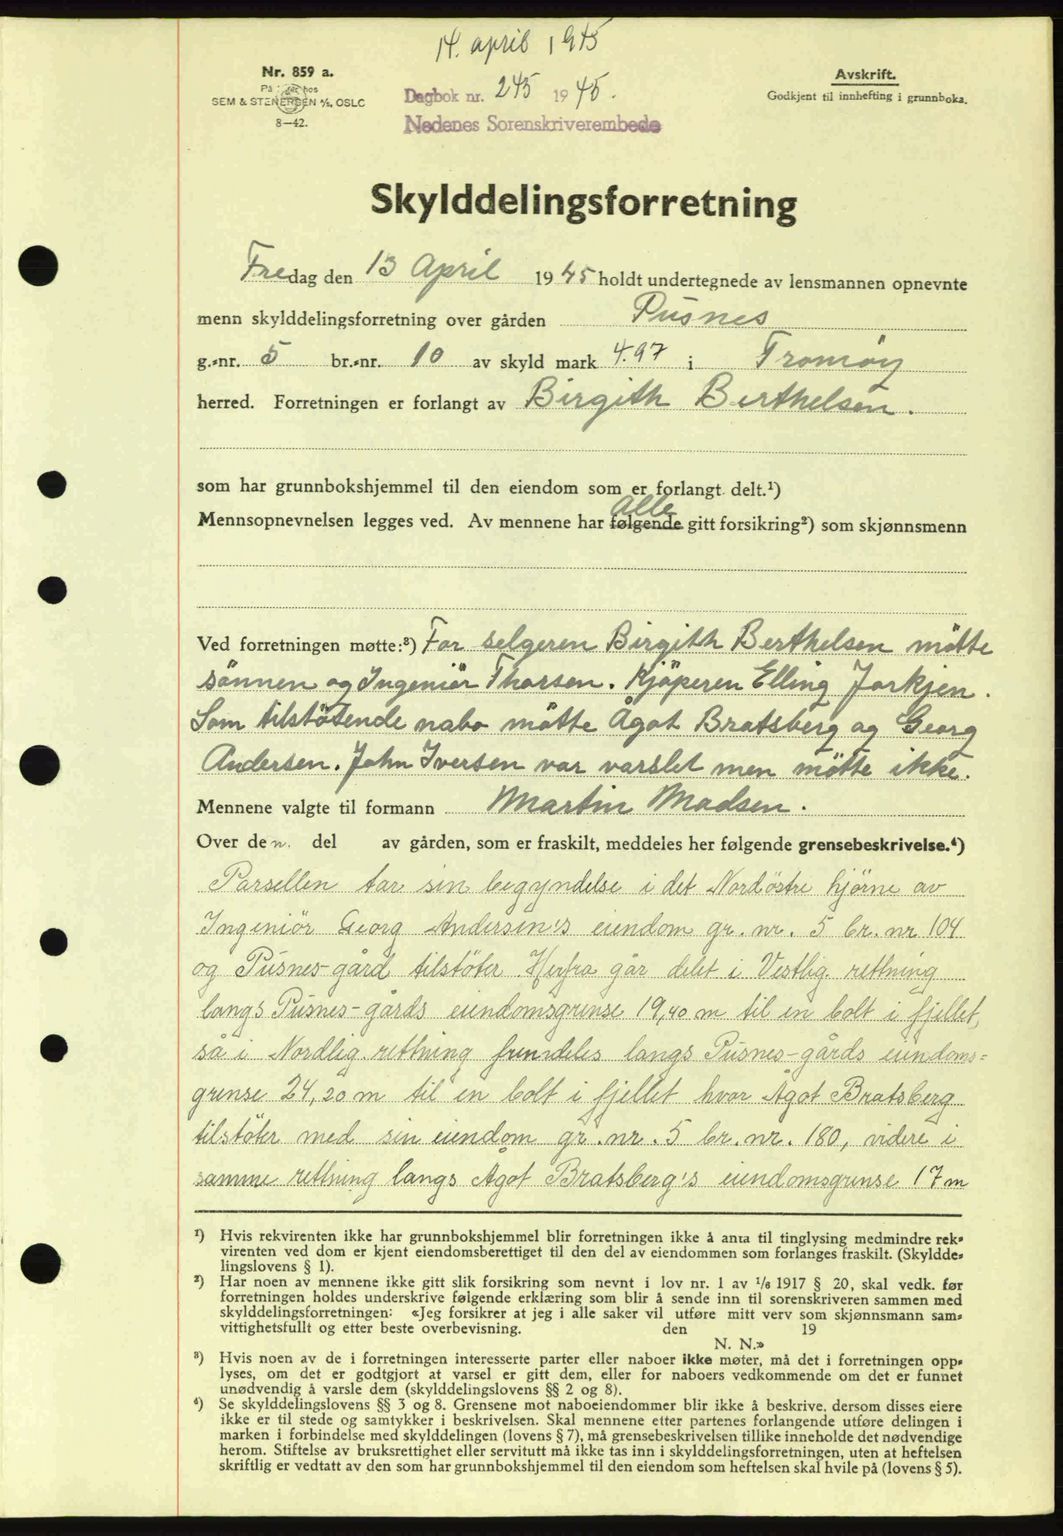 14. april 1945
Nr. 859 a.
På lager hos
SEM & STENERSEN A/S, OSLO
8—42.
Dagbok nr. 245 1945.
Nedenes Sorenskriverembede
Avskrift.
Godkjent til innhefting i grunnboka.
Skylddelingsforretning
Fredag den 13 April 1945 holdt undertegnede av lensmannen opnevnte
menn skylddelingsforretning over gården Pusnes
g.-nr. 5 br.-nr. 10 av skyld mark 4.97 i Tromøy
herred. Forretningen er forlangt av Birgith Berthelsen.
som har grunnbokshjemmel til den eiendom som er forlangt delt.¹)
alle
Mennsopnevnelsen legges ved. Av mennene har følgende gitt forsikring²) som skjønnsmenn
Ved forretningen møtte:³) For selgeren Birgith Berthelsen møtte
sönnen og Ingeniör Thorsen. Kjöperen Elling Jorkjen.
Som tilstötende nabo mötte Ågot Bratsberg og Georg
Andersen. John Iversen var varslet men mötte ikke.
Mennene valgte til formann Martin Madsen.
Over den del av gården, som er fraskilt, meddeles her følgende grensebeskrivelse.⁴)
Parsellen tar sin begyndelse i det Nordöstre hjörne av
Ingeniör Georg Andersen's eiendom gr. nr. 5 br. nr 104
og Pusnes-gård tilstöter Herfra går delet i Vestlig rettning
langs Pusnes-gårds eiendomsgrense 19,40 m til en bolt i fjellet,
så i Nordlig rettning fremdeles langs Pusnes-gårds eiendoms=
grense 24,20 m til en bolt i fjellet hvor Ågot Bratsberg
tilstöter med sin eiendom gr. nr. 5 br. nr. 180, videre i
samme rettning langs Ågot Bratsberg's eiendomsgrense 17 m
¹) Hvis rekvirenten ikke har grunnbokshjemmel blir forretningen ikke å anta til tinglysing medmindre rek-
virenten ved dom er kjent eiendomsberettiget til den del av eiendommen som forlanges fraskilt. (Skyldde-
lingslovens § 1).
²) Har noen av mennene ikke gitt slik forsikring som nevnt i lov nr. 1 av 1/6 1917 § 20, skal vedk. før
forretningen holdes underskrive følgende erklæring som blir å sende inn til sorenskriveren sammen med
skylddelingsforretningen: «Jeg forsikrer at jeg i alle saker vil utføre mitt verv som skjønnsmann sam-
vittighetsfullt og etter beste overbevisning. den 19
N. N.»
³) Hvis noen av de i forretningen interesserte parter eller naboer ikke møter, må det i forretningen opp-
lyses, om det er godtgjort at varsel er gitt dem, eller for naboers vedkommende om det er funnet
unødvendig å varsle dem (skylddelingslovens §§ 2 og 8).
⁴) Se skylddelingslovens §§ 3 og 8. Grensene mot naboeiendommer blir ikke å beskrive, dersom disses eiere
ikke er til stede og samtykker i beskrivelsen. Skal mennene etter partenes forlangende utføre delingen i
marken i forbindelse med skylddelingen (lovens § 7), må grensebeskrivelsen tillike inneholde det nødvendige
herom. Stiftelse av bruksrettighet eller servitutt må ikke tas inn i skylddelingsforretningen, uten at heftelsen
skriftlig er vedtatt av den som har grunnbokshjemmel til den eiendom som heftelsen skal hvile på (lovens § 5).